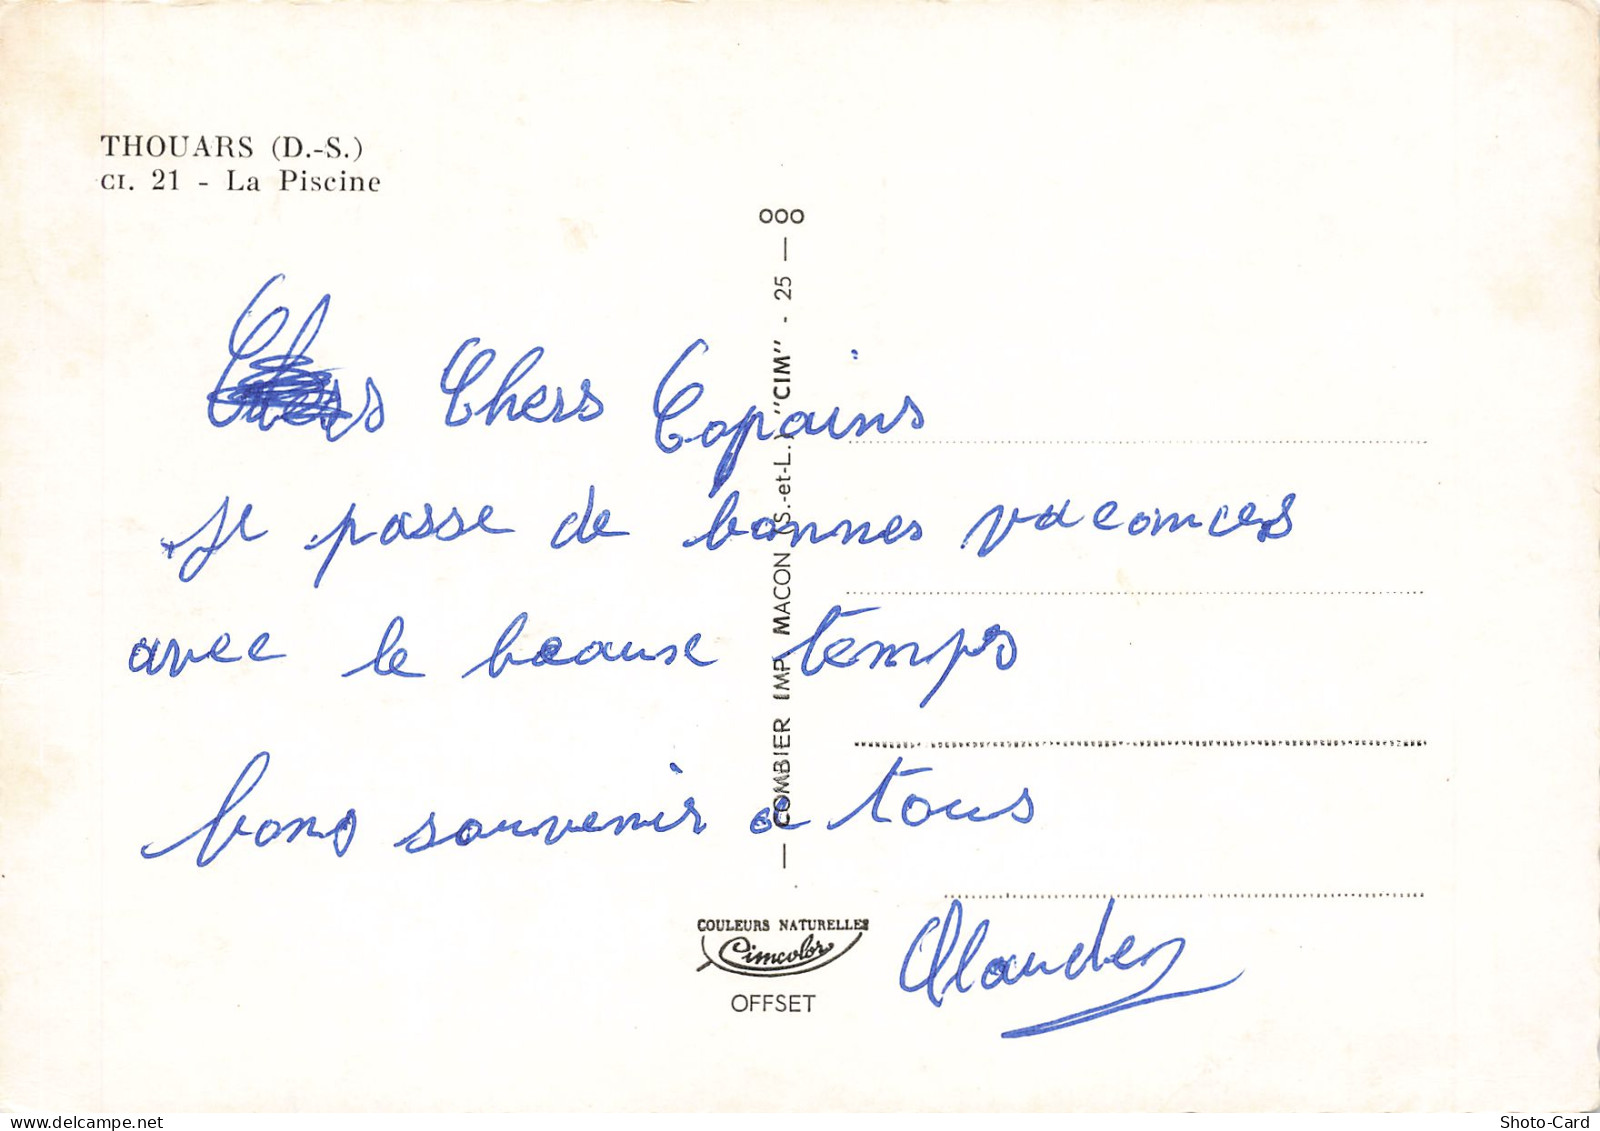 THOUARS (D.-S.)
CI. 21 - La Piscine
Chers Copains
je passe de bonnes vacances
avec le beaux temps
bons souvenir a tous
Claude
COMBIER IMP. MACON (S.-et-L.) "CIM" - 25 — 000
COULEURS NATURELLES
Cimcolor
OFFSET
delcampe.net
Shoto-Card